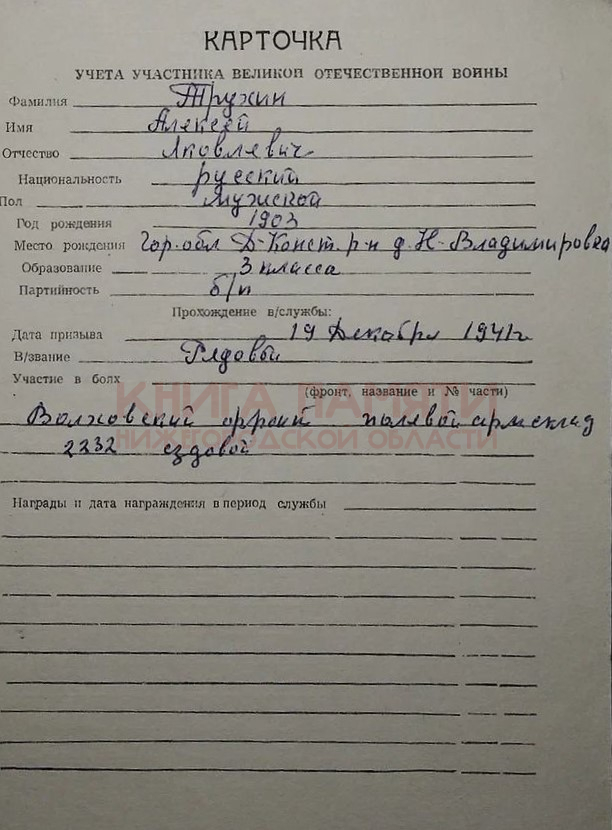 КАРТОЧКА
УЧЕТА УЧАСТНИКА ВЕЛИКОЙ ОТЕЧЕСТВЕННОЙ ВОЙНЫ
Фамилия Трухин
Имя Алексей
Отчество Яковлевич
Национальность русский
Пол мужской
Год рождения 1903
Место рождения Гор. обл Д-Конст. р-н д. Н-Владимировка
Образование 3 класса
Партийность б/п
Прохождение в/службы:
Дата призыва 19 Декабря 1941г
В/звание Рядовой
Участие в боях
(фронт, название и № части)
КНИГА ПАМЯТИ
НИЖЕГОРОДСКОЙ ОБЛАСТИ
Волховский фронт полевой армсклад
2232 ездовой
Награды и дата награждения в период службы